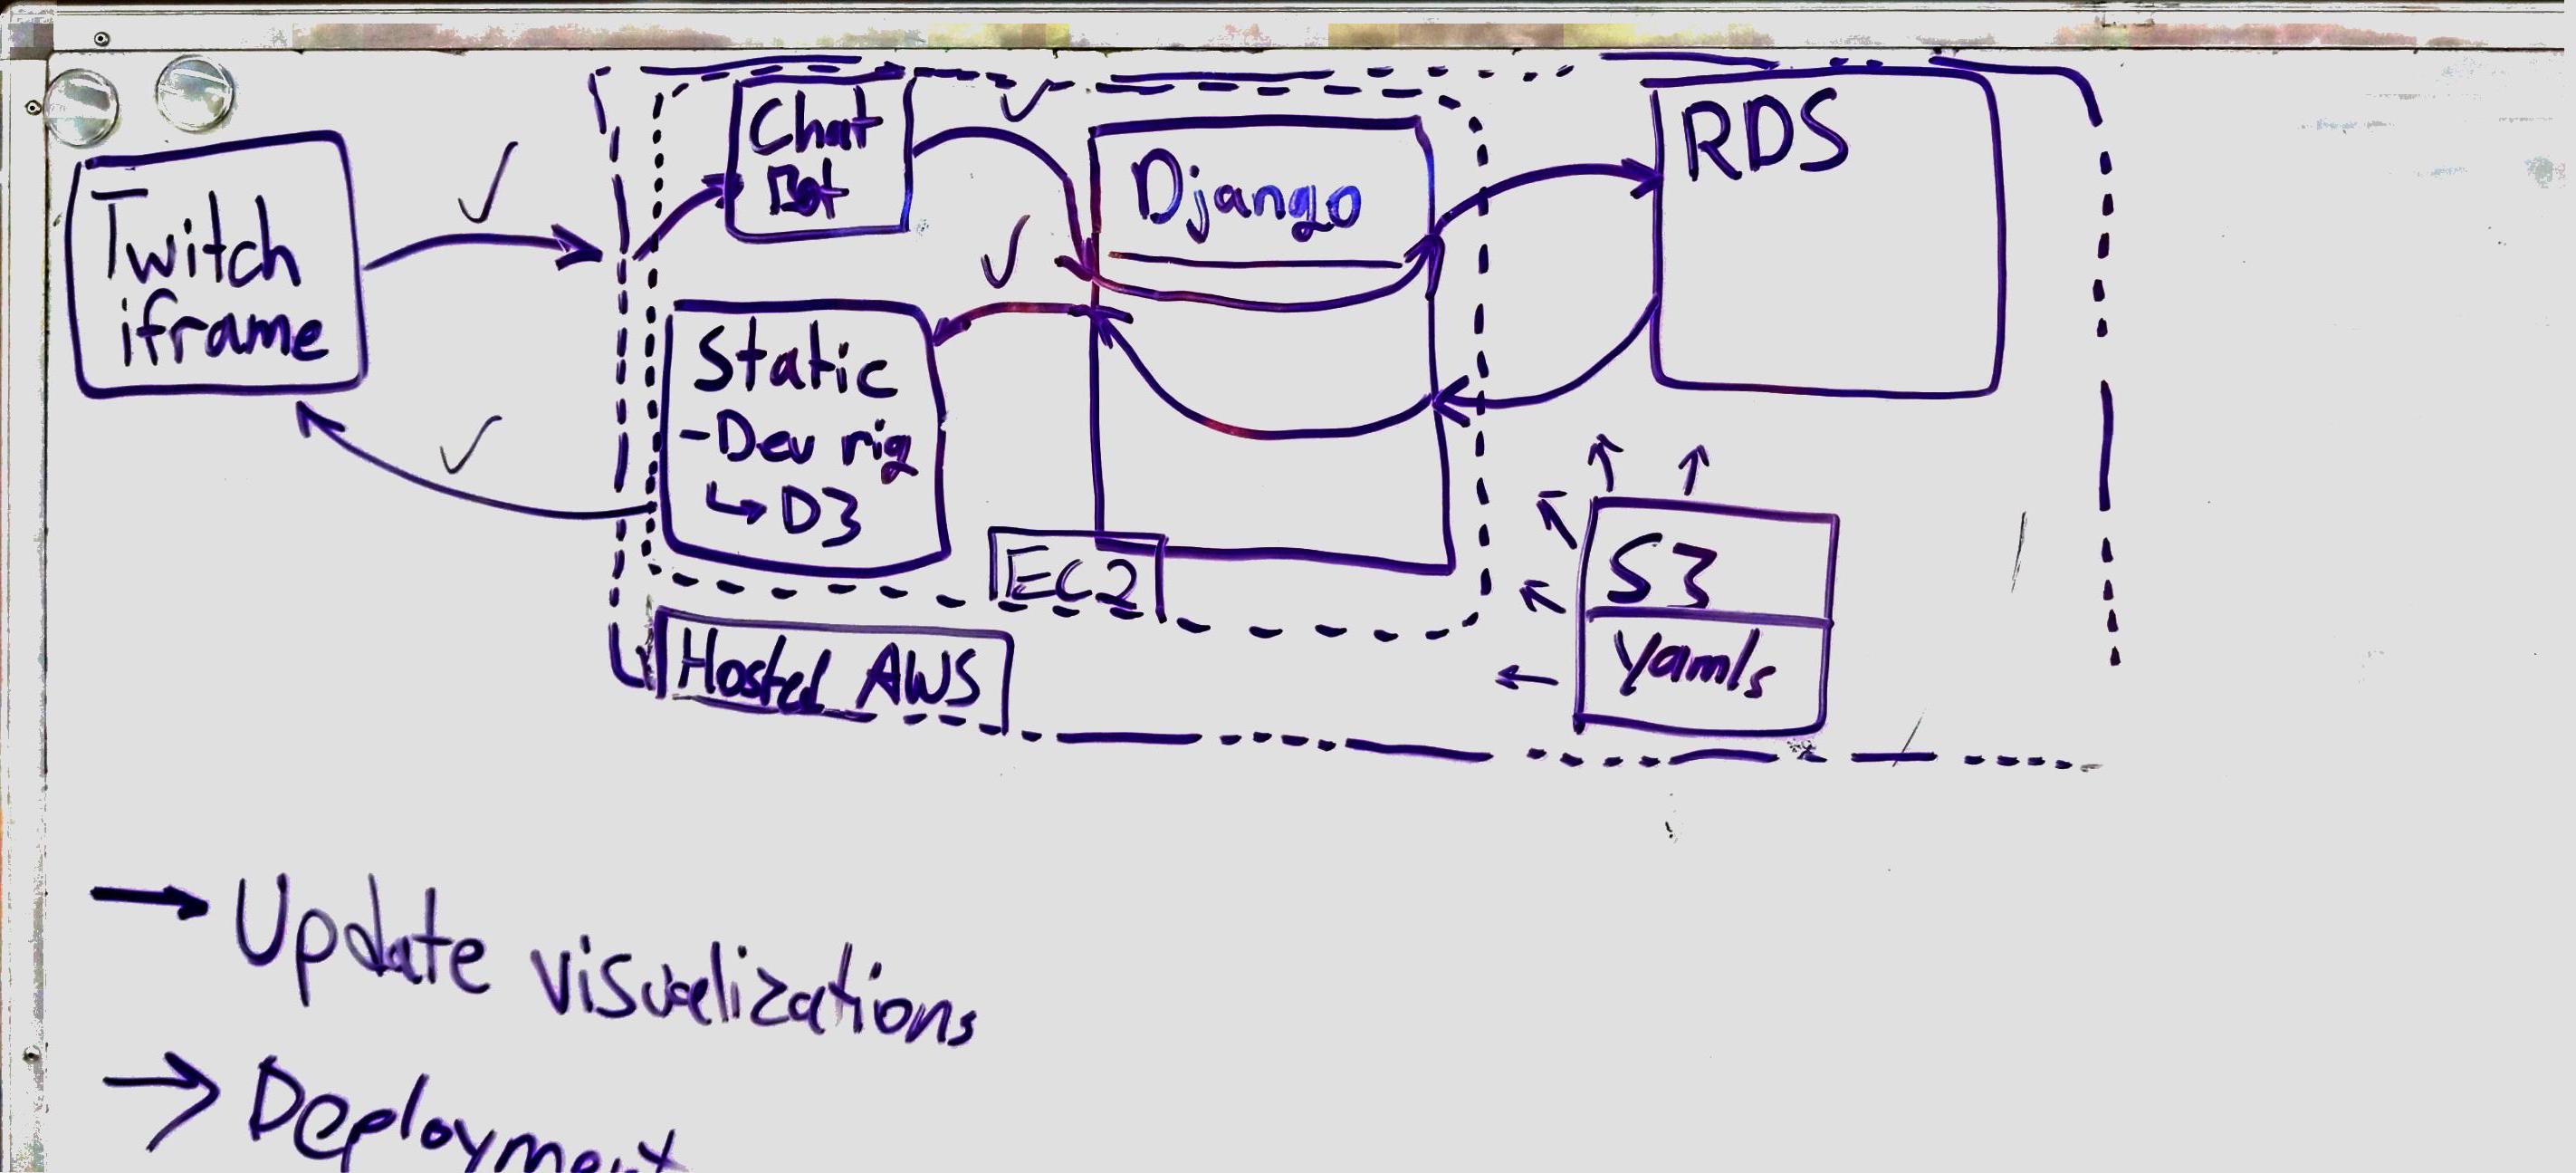 Twitch
iframe
Chat
Bot
Django
RDS
Static
-Dev rig
↳ D3
EC2
Hosted AWS
S3
Yamls
→ Update visualizations
→ Deployment